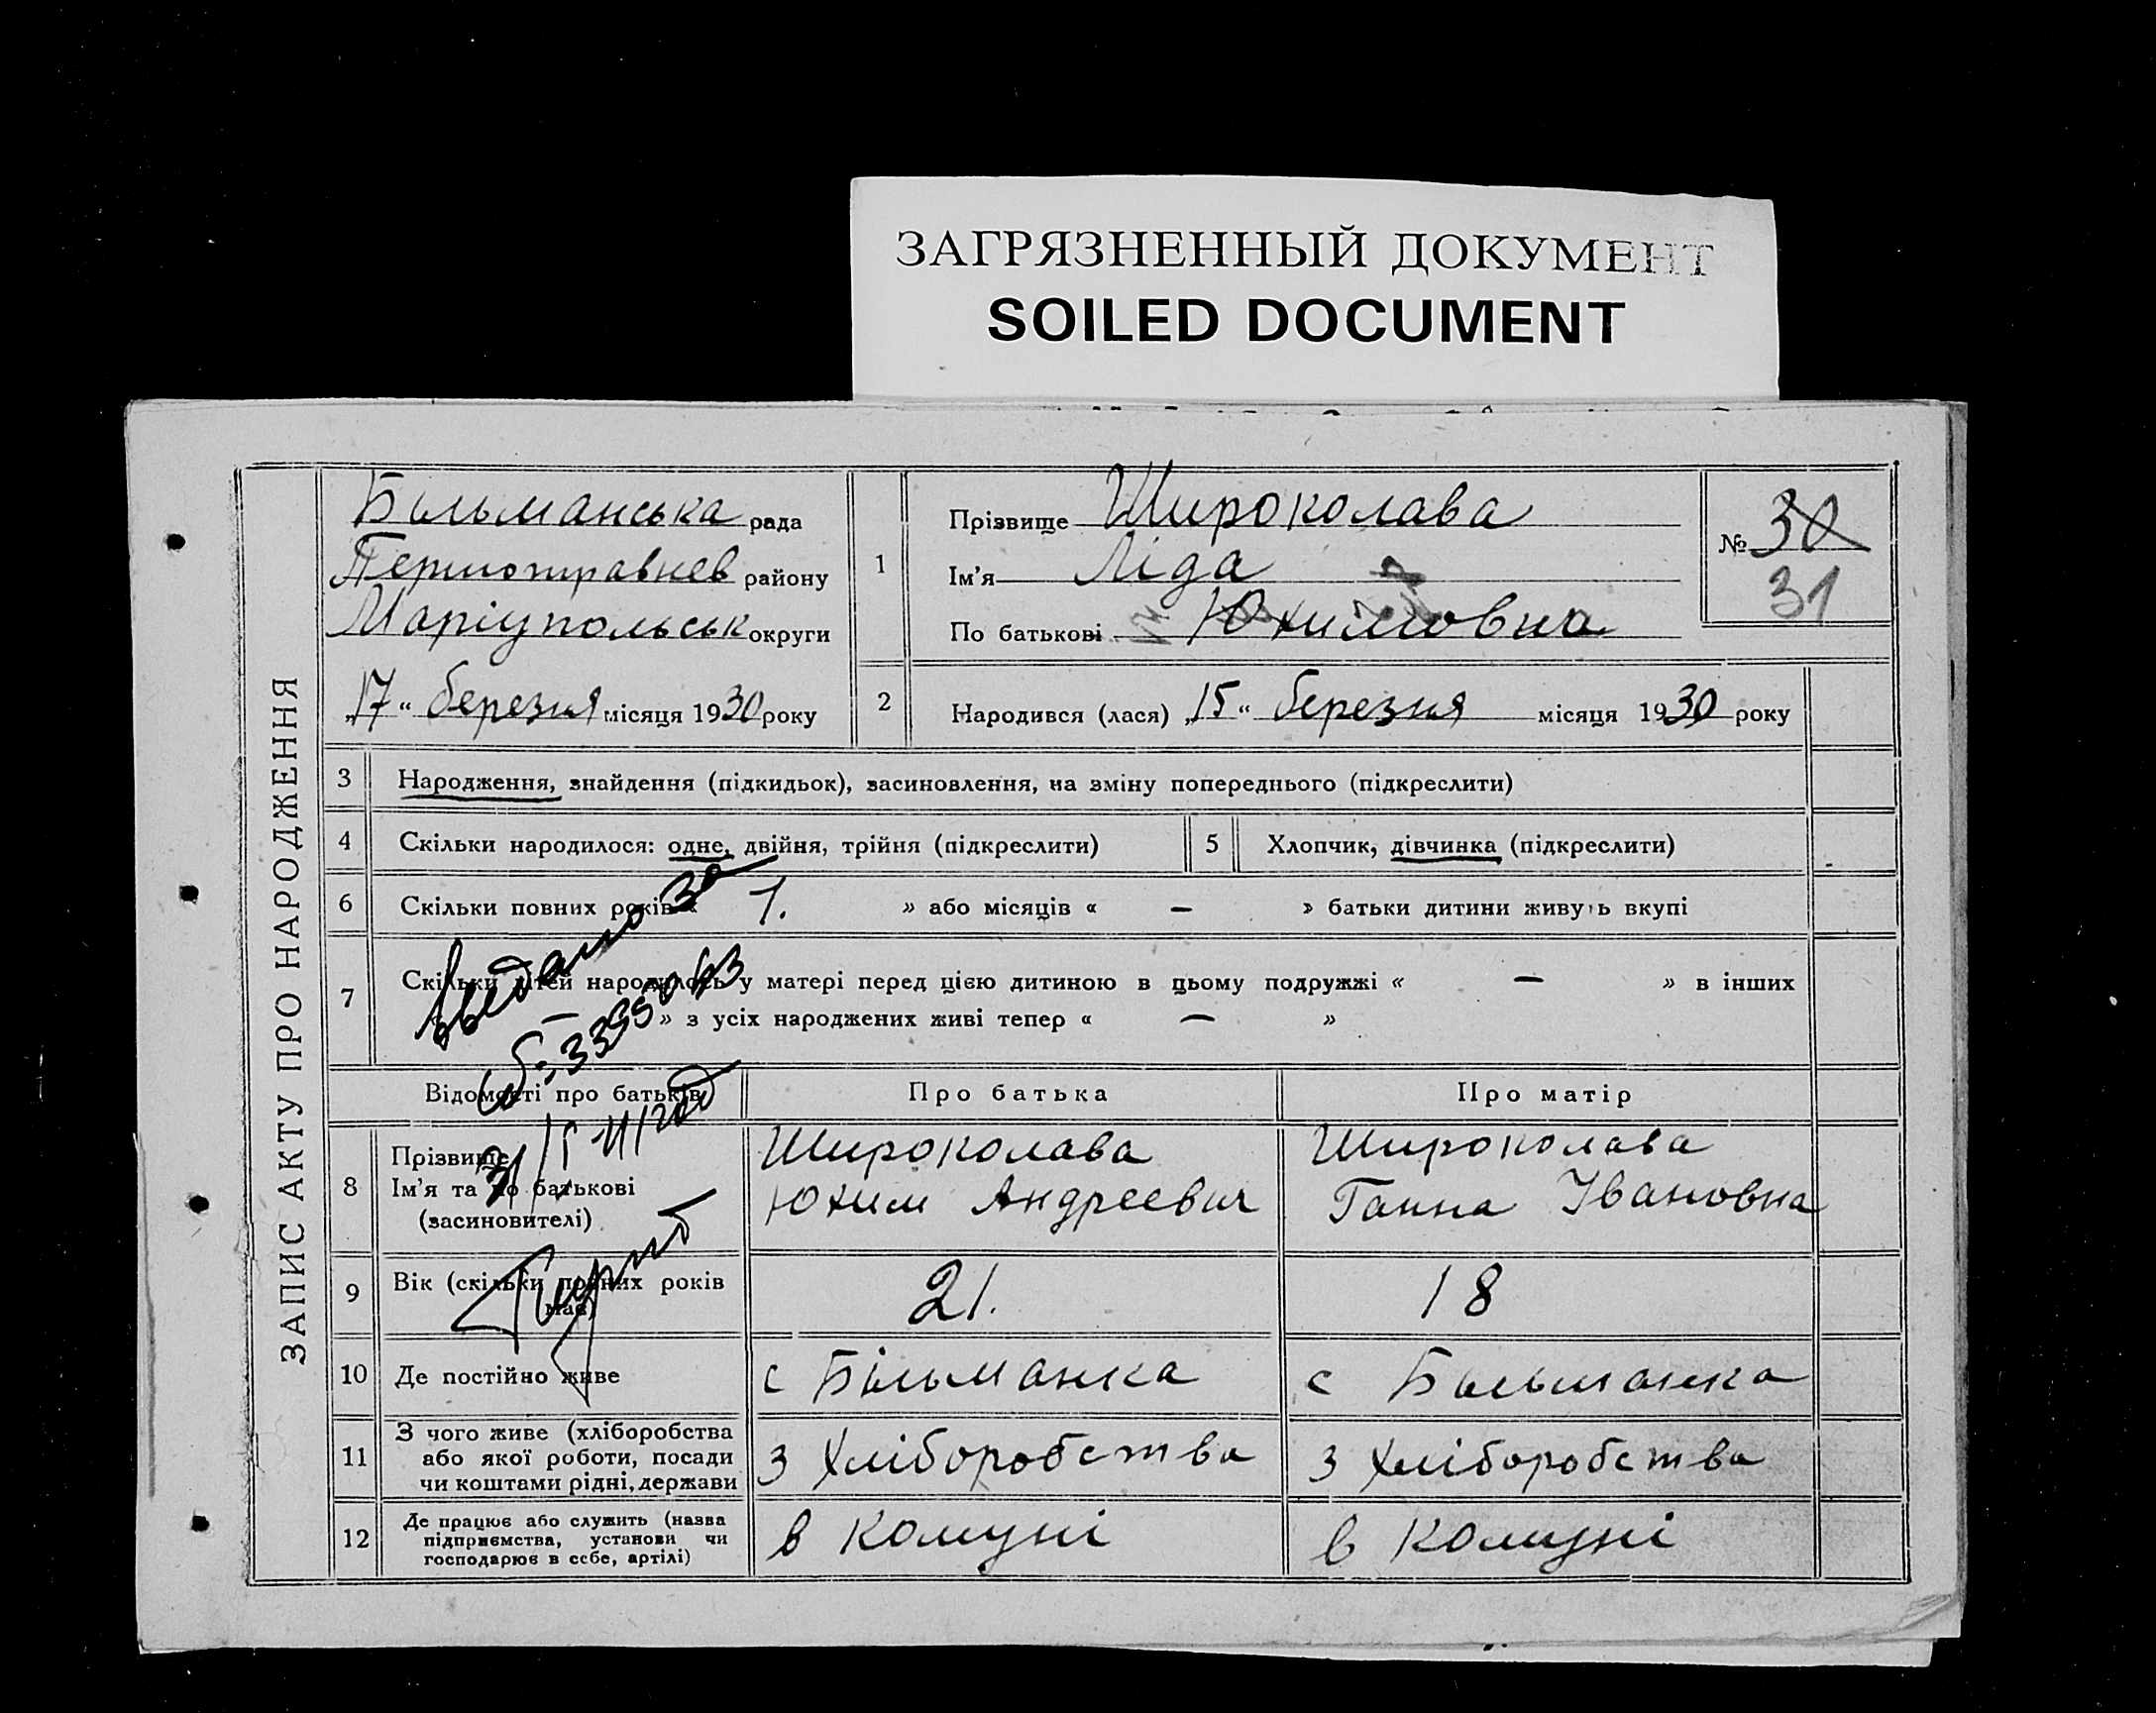 ЗАГРЯЗНЕННЫЙ ДОКУМЕНТ
SOILED DOCUMENT
ЗАПИС АКТУ ПРО НАРОДЖЕННЯ
Більманська рада
Першотравнев району
Маріупольськ округи
„17“ березня місяця 1930 року
1
Прізвище Широколава
Ім'я Ліда
По батькові Юхимовна
№ 30
31
2 Народився (лася) „15“ березня місяця 1930 року
3 Народження, знайдення (підкидьок), засиновлення, на зміну попереднього (підкреслити)
4 Скільки народилося: одне, двійня, трійня (підкреслити) 5 Хлопчик, дівчинка (підкреслити)
6 Скільки повних років « 1. » або місяців « — » батьки дитини живуть вкупі
7 Скільки дітей народилось у матері перед цією дитиною в цьому подружжі « — » в інших
« — » з усіх народжених живі тепер « — »
Відомості про батьків Про батька Про матір
8 Прізвище Широколава Широколава
Ім'я та по батькові Юхим Андреевич Ганна Івановна
(засиновителі)
9 Вік (скільки повних років має) 21. 18
10 Де постійно живе с Більманка с Більманка
11 З чого живе (хліборобства
або якої роботи, посади з Хліборобства з Хліборобства
чи коштами рідні, держави
12 Де працює або служить (назва
підприємства, установи чи в комуні в комуні
господарює в себе, артілі)